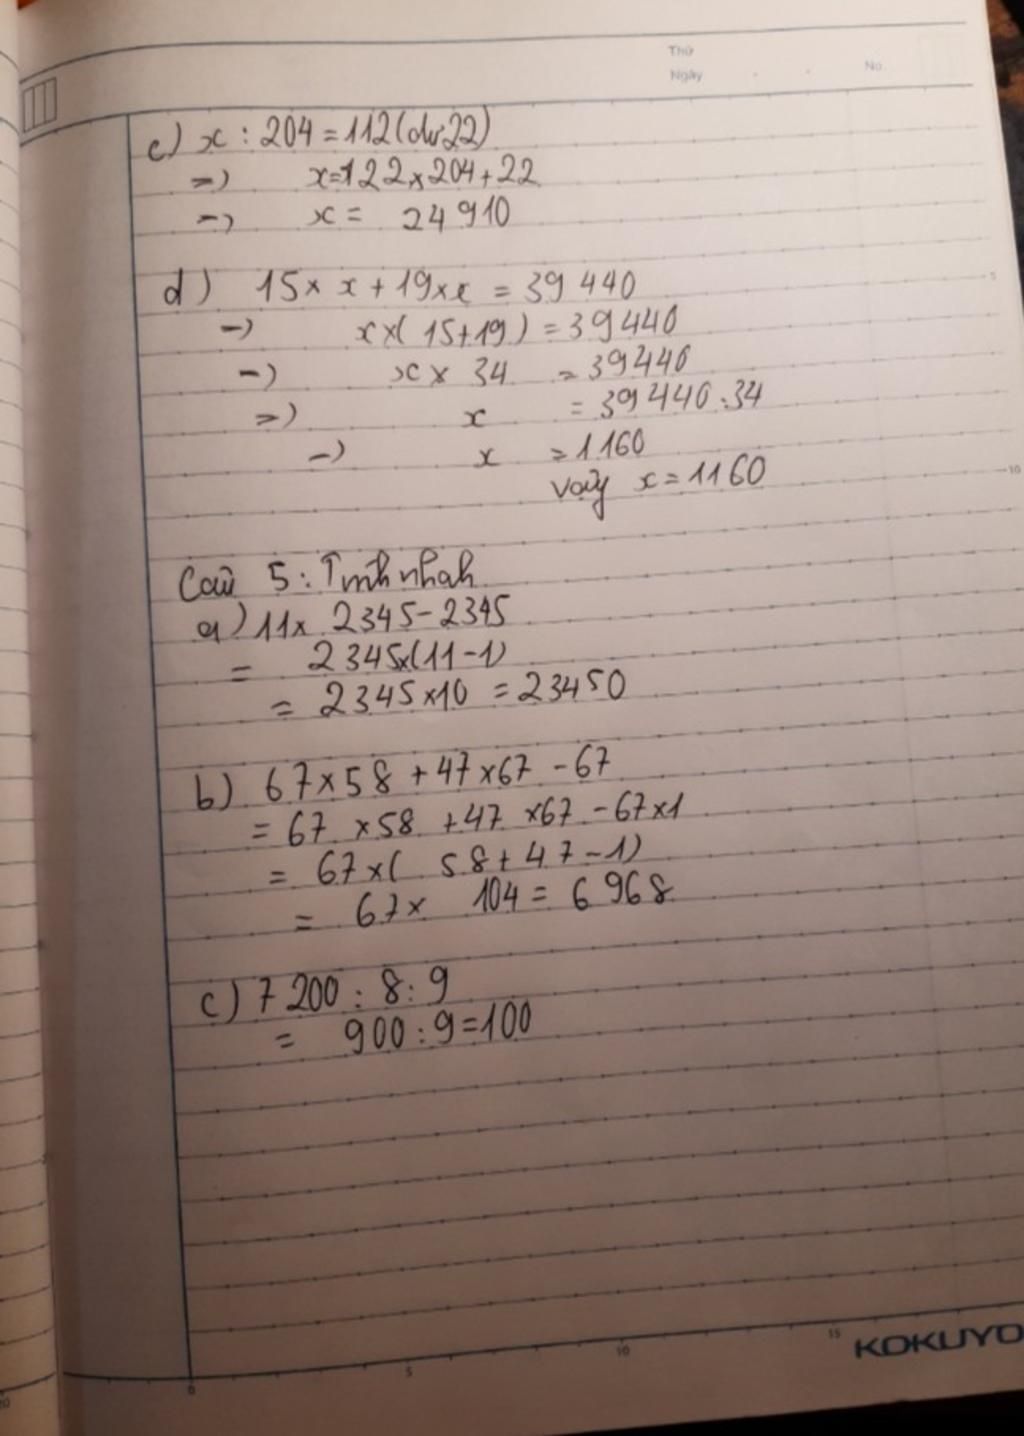 Thứ
Ngày
No.
c) x : 204 = 112 (dư 22)
=> x = 122 x 204 + 22
=> x = 24 910
d) 15 x x + 19 x x = 39 440
=> x x ( 15 + 19 ) = 39 440
=> x x 34 = 39 440
=> x = 39 440 : 34
=> x = 1 160
Vậy x = 1160
Câu 5 : Tính nhanh
a) 11 x 2345 - 2345
= 2345 x (11 - 1)
= 2345 x 10 = 23450
b) 67 x 58 + 47 x 67 - 67
= 67 x 58 + 47 x 67 - 67 x 1
= 67 x ( 58 + 47 - 1)
= 67 x 104 = 6 968
c) 7 200 : 8 : 9
= 900 : 9 = 100
5
10
15
KOKUYO
10
5
0
20